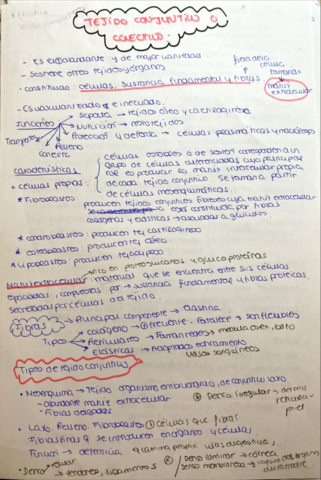 TEJIDO CONJUNTIVO O
CONECTIVO.
- Es el abundante y de mayor variedad
- Sostiene otros tejidos y órganos
- constituido: células, sustancia fundamental y fibras
matriz
extracelular
- Es vascularizado e inervado.
Funciones
Soporte → tejidos óseo y cartilaginoso
Nutrición →
Protección y defensa → células plasmáticas y macrófagos
Transporte
Relleno
Conecta
Características
• células propias:
células estables o de sostén corresponden a un
grupo de células diferenciadas cuyo principal
rol es producir la matriz intercelular propia
de cada tejido conjuntivo. Se forma a partir
de células mesenquimáticas.
• Fibroblastos
producen tejido conjuntivo fibroso cuya matriz extracelular
está constituida por fibras
colágenas y elásticas
• condroblastos: producen tej cartilaginoso
• osteoblastos: producen tej óseo
• Lipoblastos: producen tej adiposo
Matriz extracelular: rico en proteoglicanos y glucoproteínas
materiales que se encuentra entre sus células
especializadas, compuestas por sustancia fundamental y fibras proteicas
secretadas por células del tejido.
Fibras
Principal componente → elastina
Tipos
Colágeno → frecuente. Fortalece → son flexibles
Reticulares → Forman redes → médula ósea, bazo
Elásticas → Adaptadas estiramiento
vasos sanguíneos
Tipos de tejido conjuntivo
• Mesénquima → Tejido organismo embrionario, de conjuntivo laxo
- abundante matriz extracelular
- Fibras delgadas
Denso irregular → dermis
reticular
piel
• Laxo. Relleno. Fibroblastos células que fibras
Fibras finas que se introducen en órganos y células
Función → defensiva
- Denso regular
→ tendones, ligamentos
Denso laminar → córnea
Denso membranoso → capsula de los órganos
duramadre